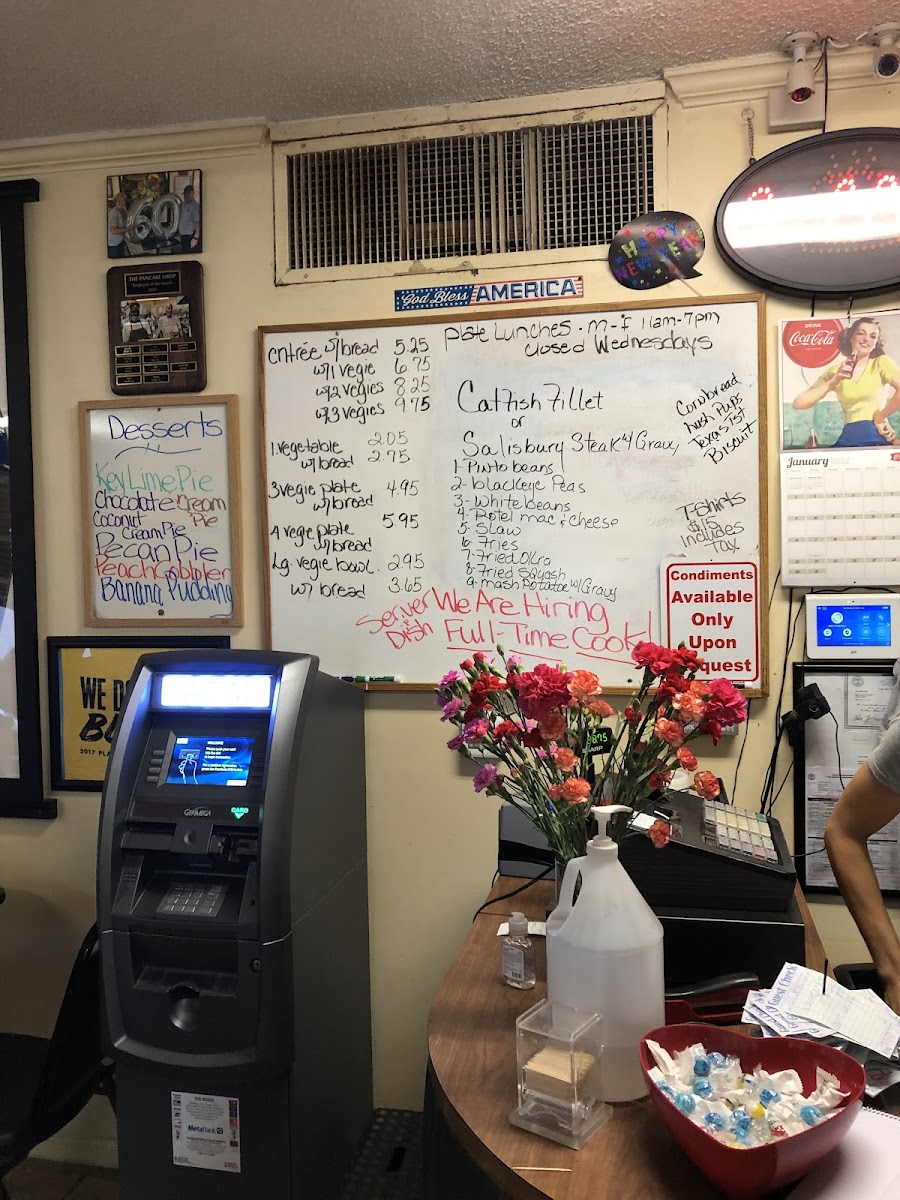 60
THE PANCAKE SHOP
Employee of the month
God Bless AMERICA
HAPPY
NEW YEAR
DRINK
Coca-Cola
January
Desserts
Key Lime Pie
Chocolate Cream
Pie
Coconut
Cream Pie
Pecan Pie
Peach Cobbler
Banana Pudding
Plate Lunches - M-F 11am-7pm
Closed Wednesdays
Entrée w/bread 5.25
w/1 vegie 6.75
w/2 vegies 8.25
w/3 vegies 9.75
1 vegetable 2.05
w/bread 2.75
3 vegie plate 4.95
w/bread
4 vegie plate 5.95
w/bread
Lg. vegie bowl. 2.95
w/ bread 3.65
Catfish Fillet
or
Salisbury Steak w/ Gravy
1- Pinto beans
2- blackeye Peas
3- White beans
4- Rotel mac & cheese
5- Slaw
6- Fries
7- Fried Okra
8- Fried Squash
9- mash Potatoe w/ Gravy
Cornbread
Hush Pups
Texas Tst
Biscuit
T-Shirts
$15
includes
Tax
Server
&
Dish
We Are Hiring
Full-Time Cook!
Condiments
Available
Only
Upon
equest
WE DO
2017
WELCOME
GENMEGA
CARD
MetaBank
SHARP
Guest Check